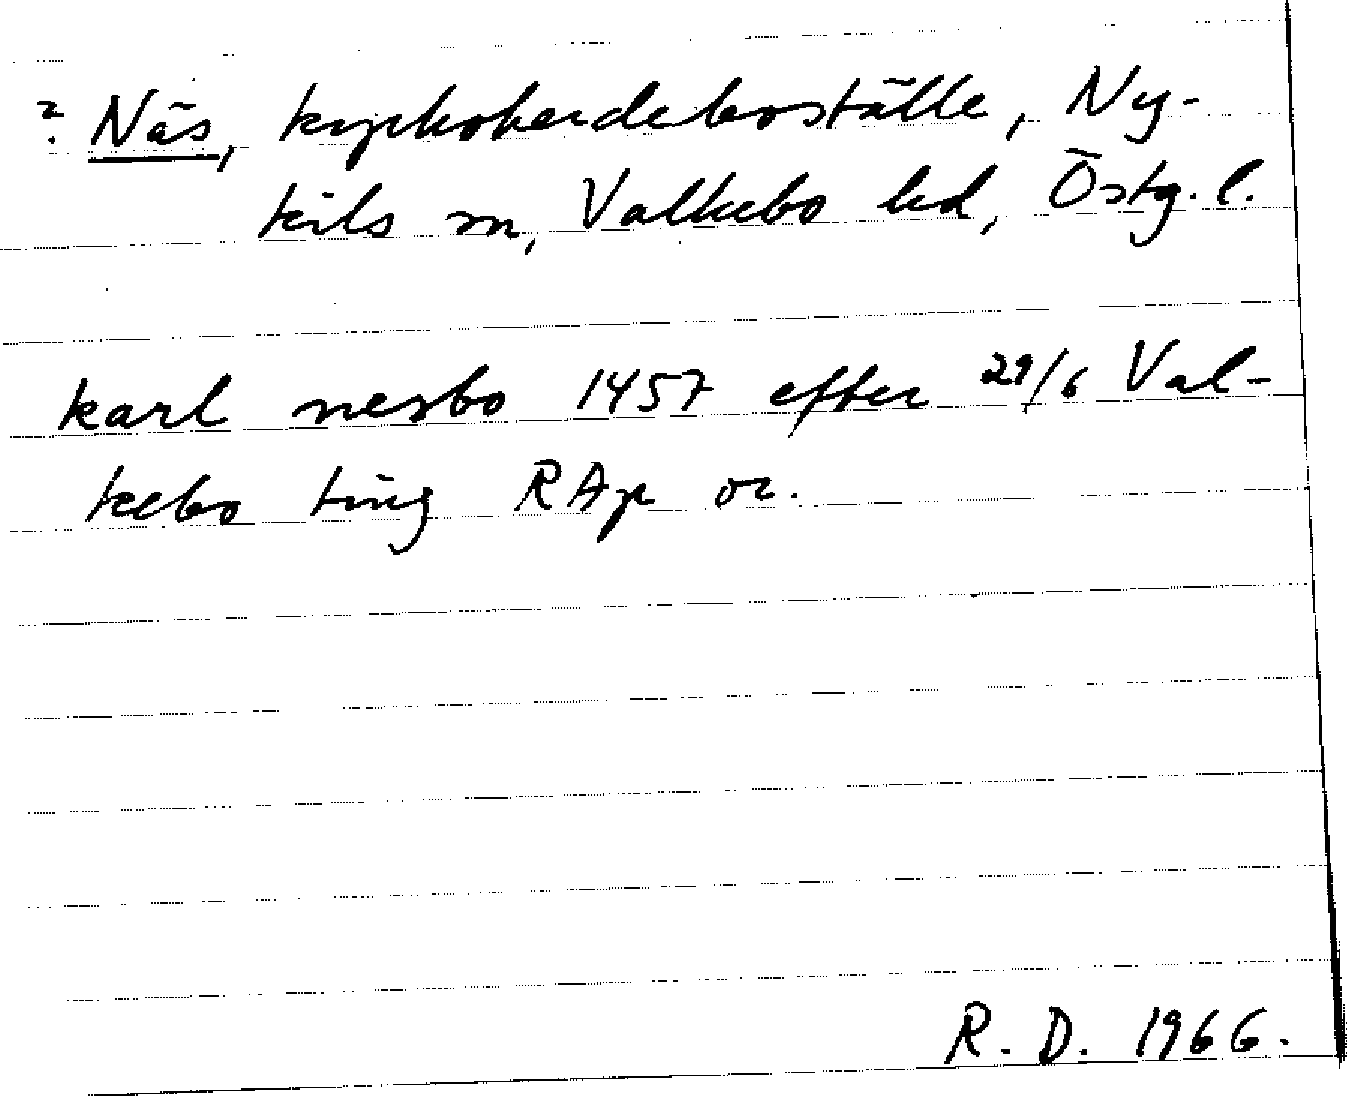 ? Näs, kyrkoherdeboställe, Ny-
kils sn, Valkebo hd, Östg. l.
karl nesbo 1457 efter 29/6 Val-
kebo ting RAp or.
R. D. 1966.